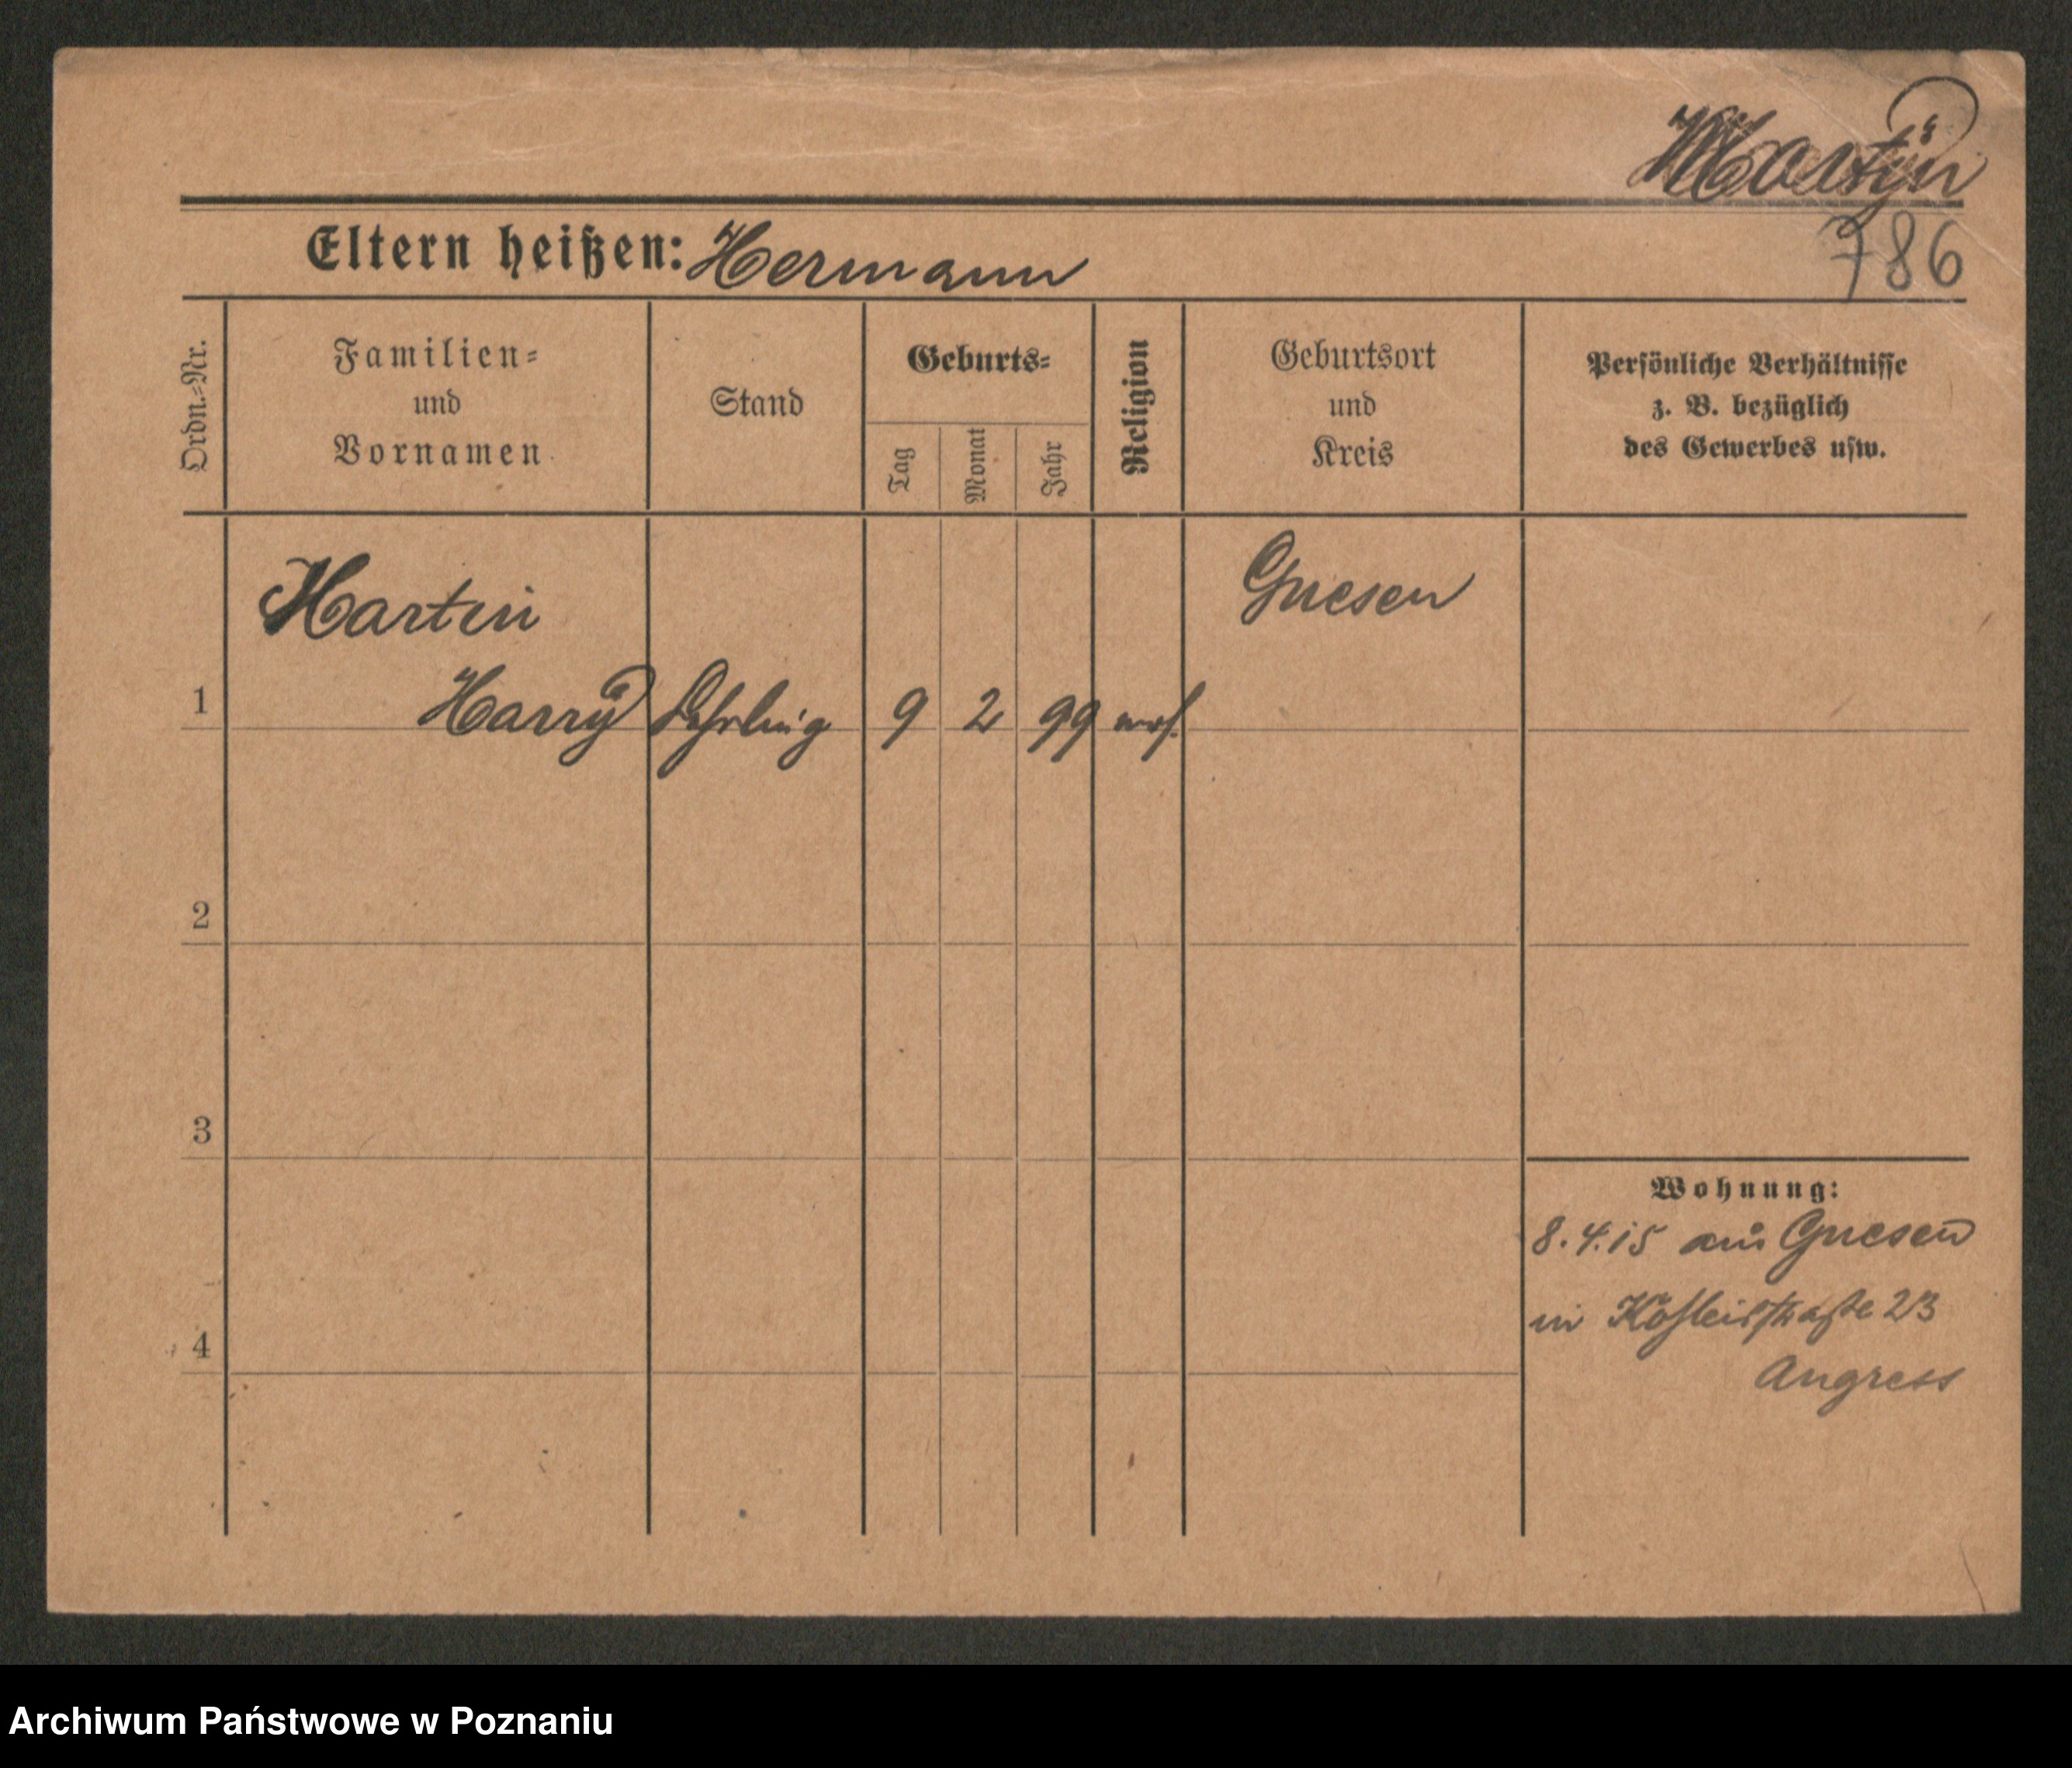 786
Eltern heißen: Hermann
Ordn.-Nr.
Familien-
und
Vornamen
Stand
Geburts-
Tag
Monat
Jahr
Religion
Geburtsort
und
Kreis
Persönliche Verhältnisse
z. B. bezüglich
des Gewerbes usw.
Gnesen
1 Harry Lehrling 9 2 99 mos.
2
3
4
Wohnung:
8.4.15 aus Gnesen
in 23
Angress
Archiwum Państwowe w Poznaniu